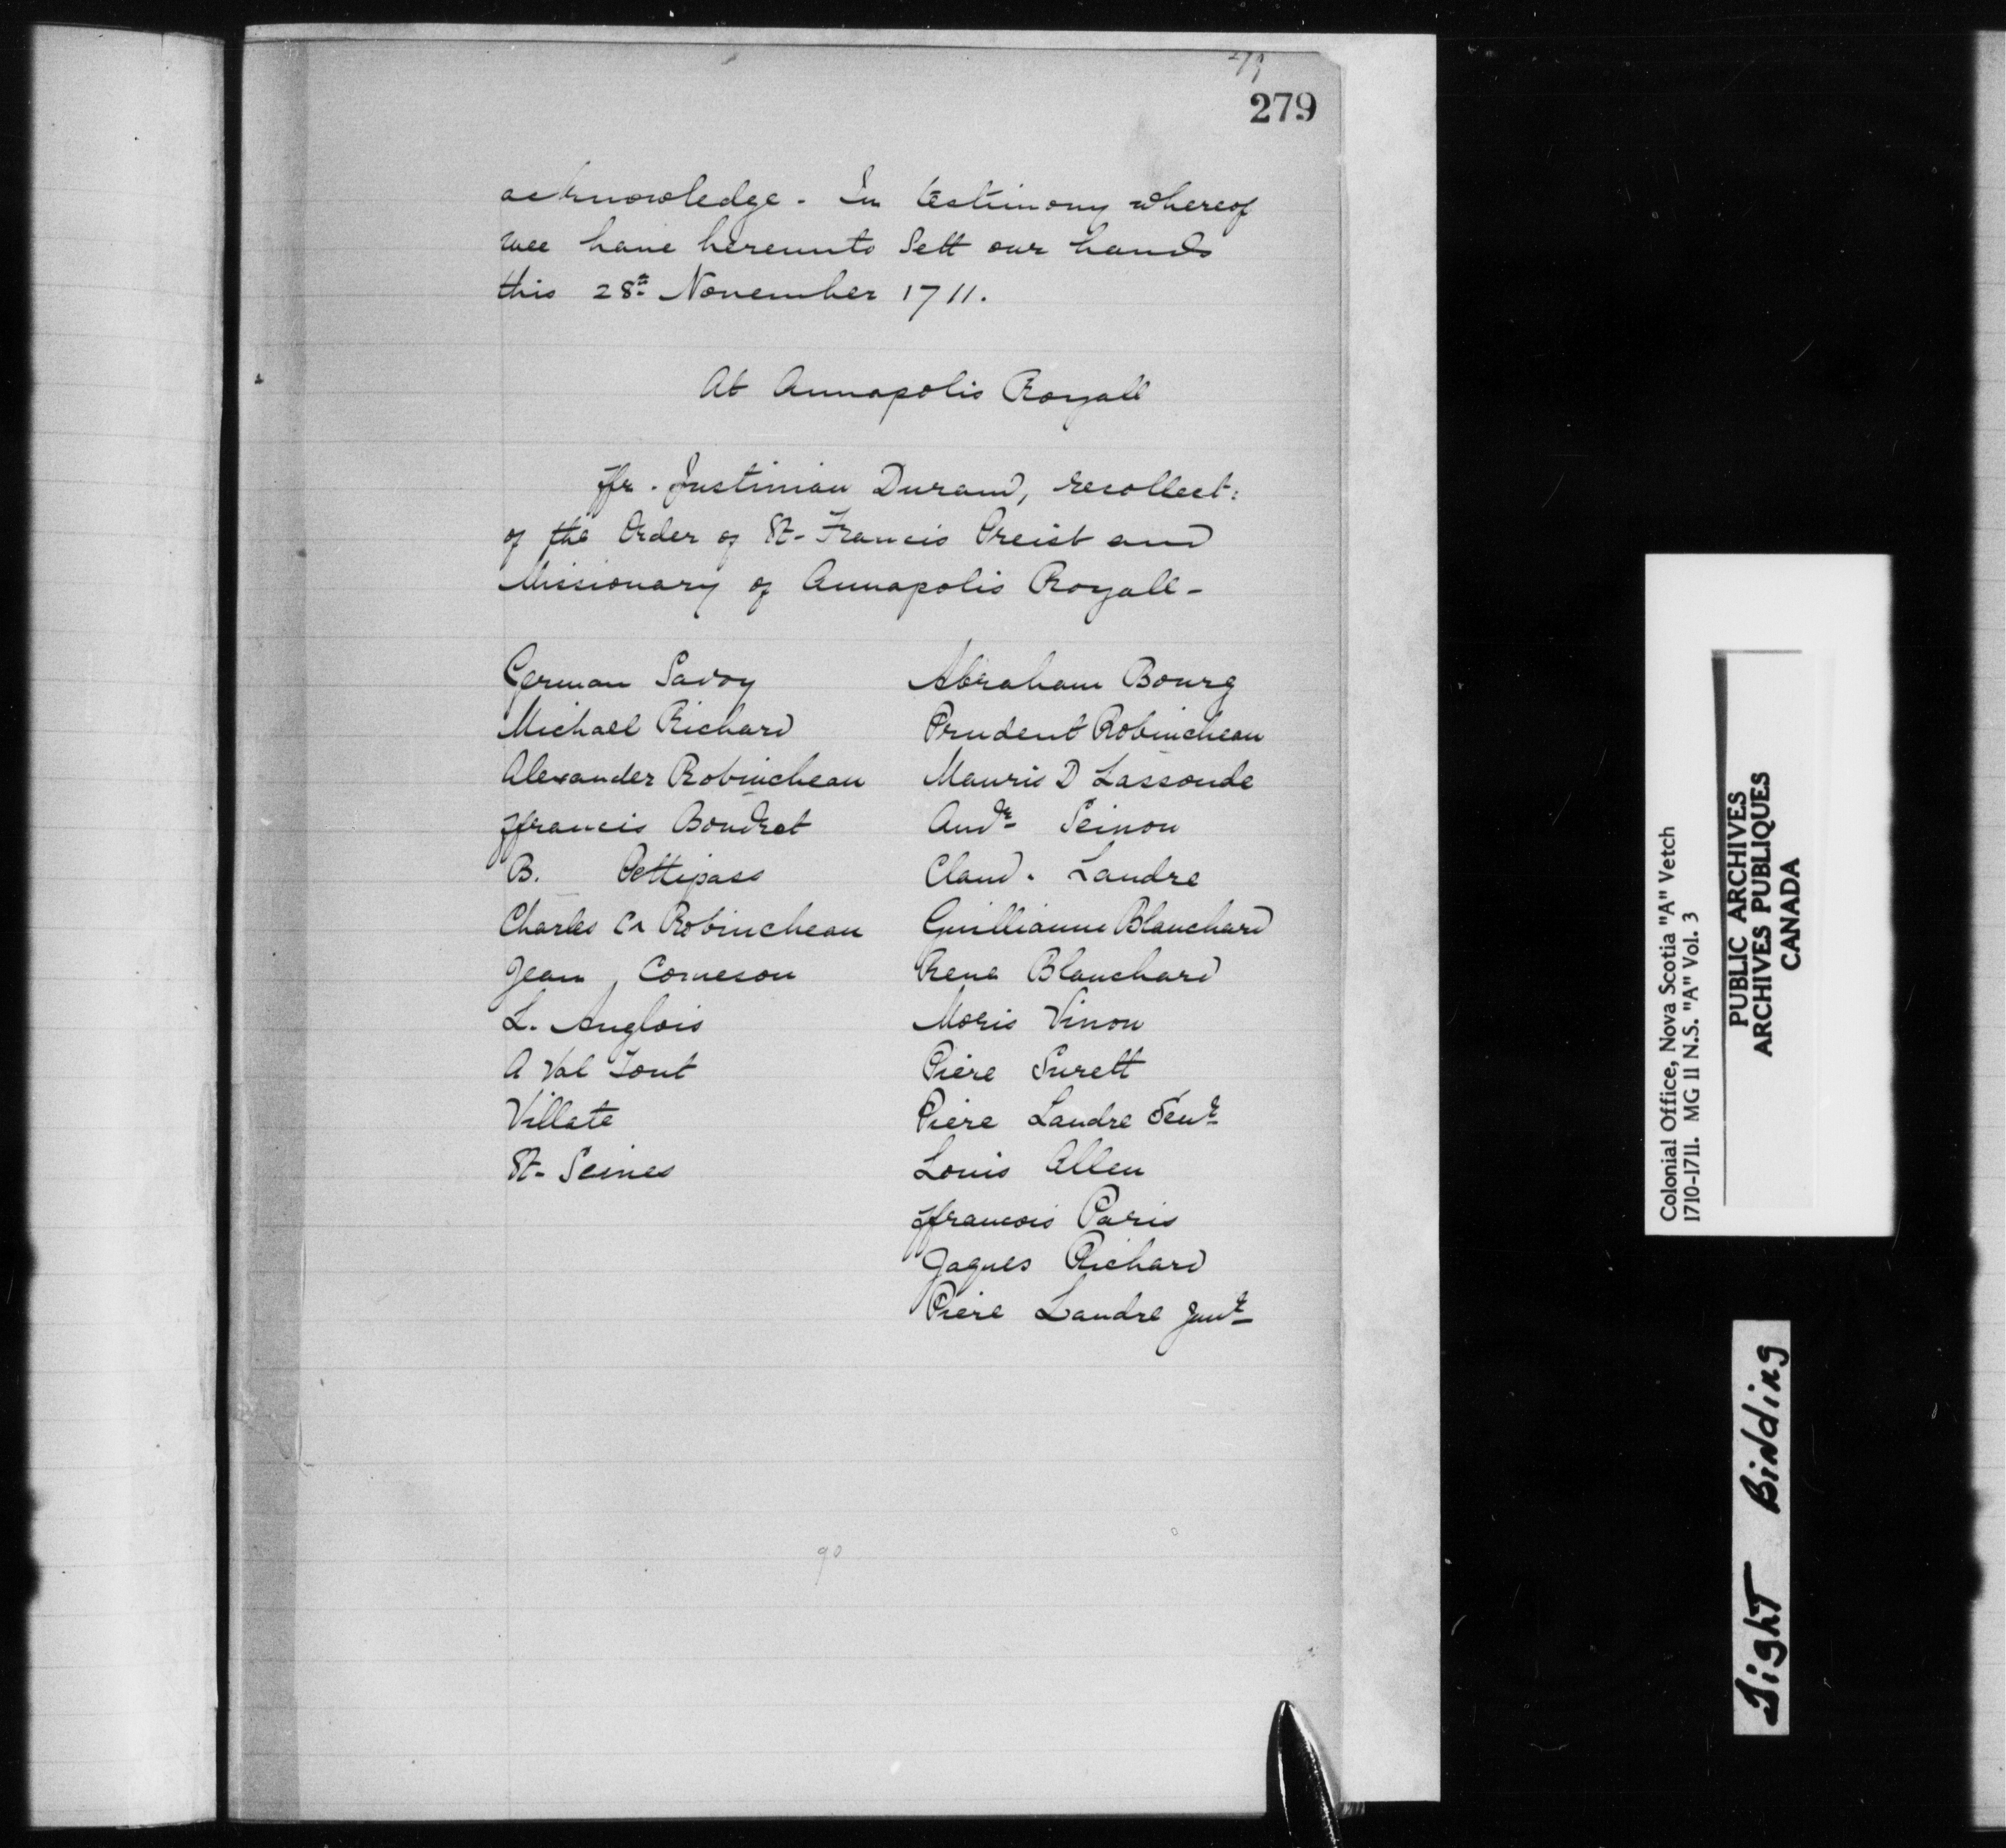 279
acknowledge. In testimony whereof
wee have hereunto Sett our hands
this 28th November 1711.
At Annapolis Royall
ffr. Justinian Durand, recollect:
of the Order of St- Francis Preist and
Missionary of Annapolis Royall-
German Savoy
Michael Richard
Alexander Robincheau
ffrancis Boudrot
B. Pettipass
Charles Ca Robincheau
Jean Comeson
L. Anglois
A Val Tout
Villate
St- Seines
Abraham Bourg
Prudent Robincheau
Mauris D Lassonde
Andr Seinon
Claud. Landre
Guillianme Blanchard
Rene Blanchard
Moris Vinon
Piere Surett
Piere Landre Senr
Louis Allen
ffrancois Paris
Jaques Richard
Piere Landre Junr
90
Colonial Office, Nova Scotia "A" Vetch
1710-1711. MG 11 N.S. "A" Vol. 3
PUBLIC ARCHIVES
ARCHIVES PUBLIQUES
CANADA
Tight Binding